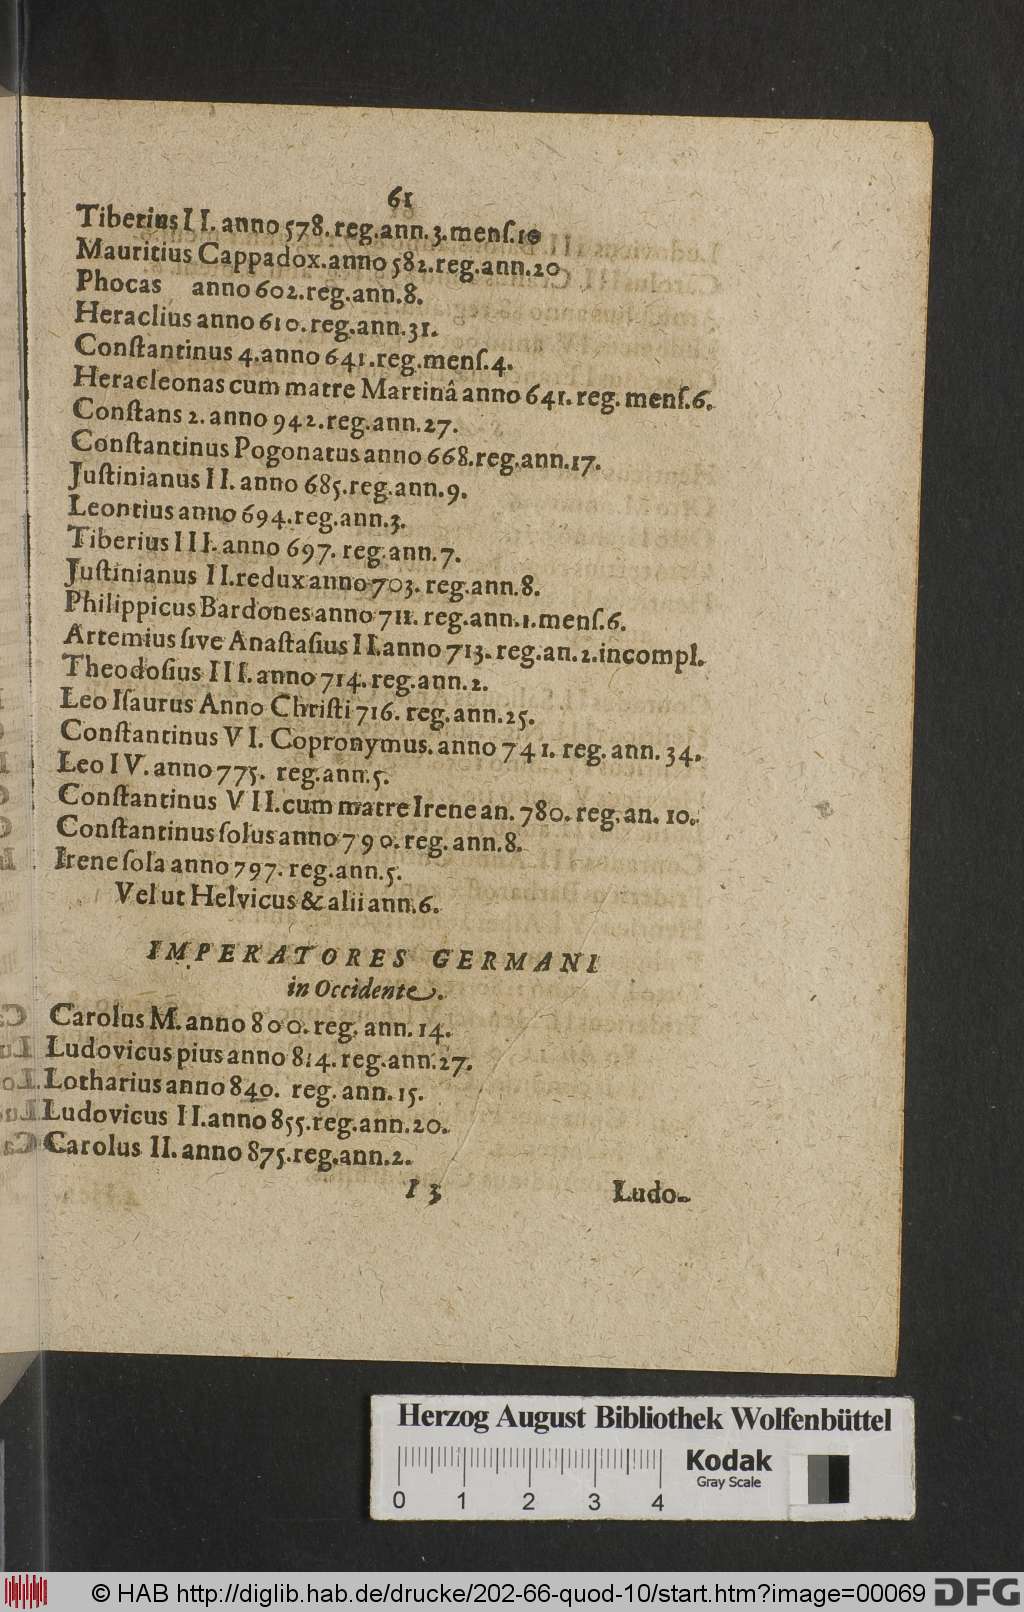 61
Tiberius II. anno 578. reg. ann. 3. menſ. 10
Mauritius Cappadox. anno 582. reg. ann. 20
Phocas anno 602. reg. ann. 8.
Heraclius anno 610. reg. ann. 31.
Conſtantinus 4. anno 641. reg. menſ. 4.
Heracleonas cum matre Martinâ anno 641. reg. menſ. 6.
Conſtans 2. anno 942. reg. ann. 27.
Conſtantinus Pogonatus anno 668. reg. ann. 17.
Juſtinianus II. anno 685. reg. ann. 9.
Leontius anno 694. reg. ann. 3.
Tiberius III. anno 697. reg. ann. 7.
Juſtinianus II. redux anno 703. reg. ann. 8.
Philippicus Bardones anno 711. reg. ann. 1. menſ. 6.
Artemius ſive Anaſtaſius II. anno 713. reg. an. 2. incompl.
Theodoſius III. anno 714. reg. ann. 2.
Leo Iſaurus Anno Chriſti 716. reg. ann. 25.
Conſtantinus VI. Copronymus. anno 741. reg. ann. 34.
Leo IV. anno 775. reg. ann. 5.
Conſtantinus VII. cum matre Irene an. 780. reg. an. 10.
Conſtantinus ſolus anno 790. reg. ann. 8.
Irene ſola anno 797. reg. ann. 5.
Vel ut Helvicus & alii ann. 6.
IMPERATORES GERMANI
in Occidente.
Carolus M. anno 800. reg. ann. 14.
Ludovicus pius anno 814. reg. ann. 27.
Lotharius anno 840. reg. ann. 15.
Ludovicus II. anno 855. reg. ann. 20.
Carolus II. anno 875. reg. ann. 2.
I 3 Ludo-
Herzog August Bibliothek Wolfenbüttel
Kodak
Gray Scale
0 1 2 3 4
© HAB http://diglib.hab.de/drucke/202-66-quod-10/start.htm?image=00069
DFG